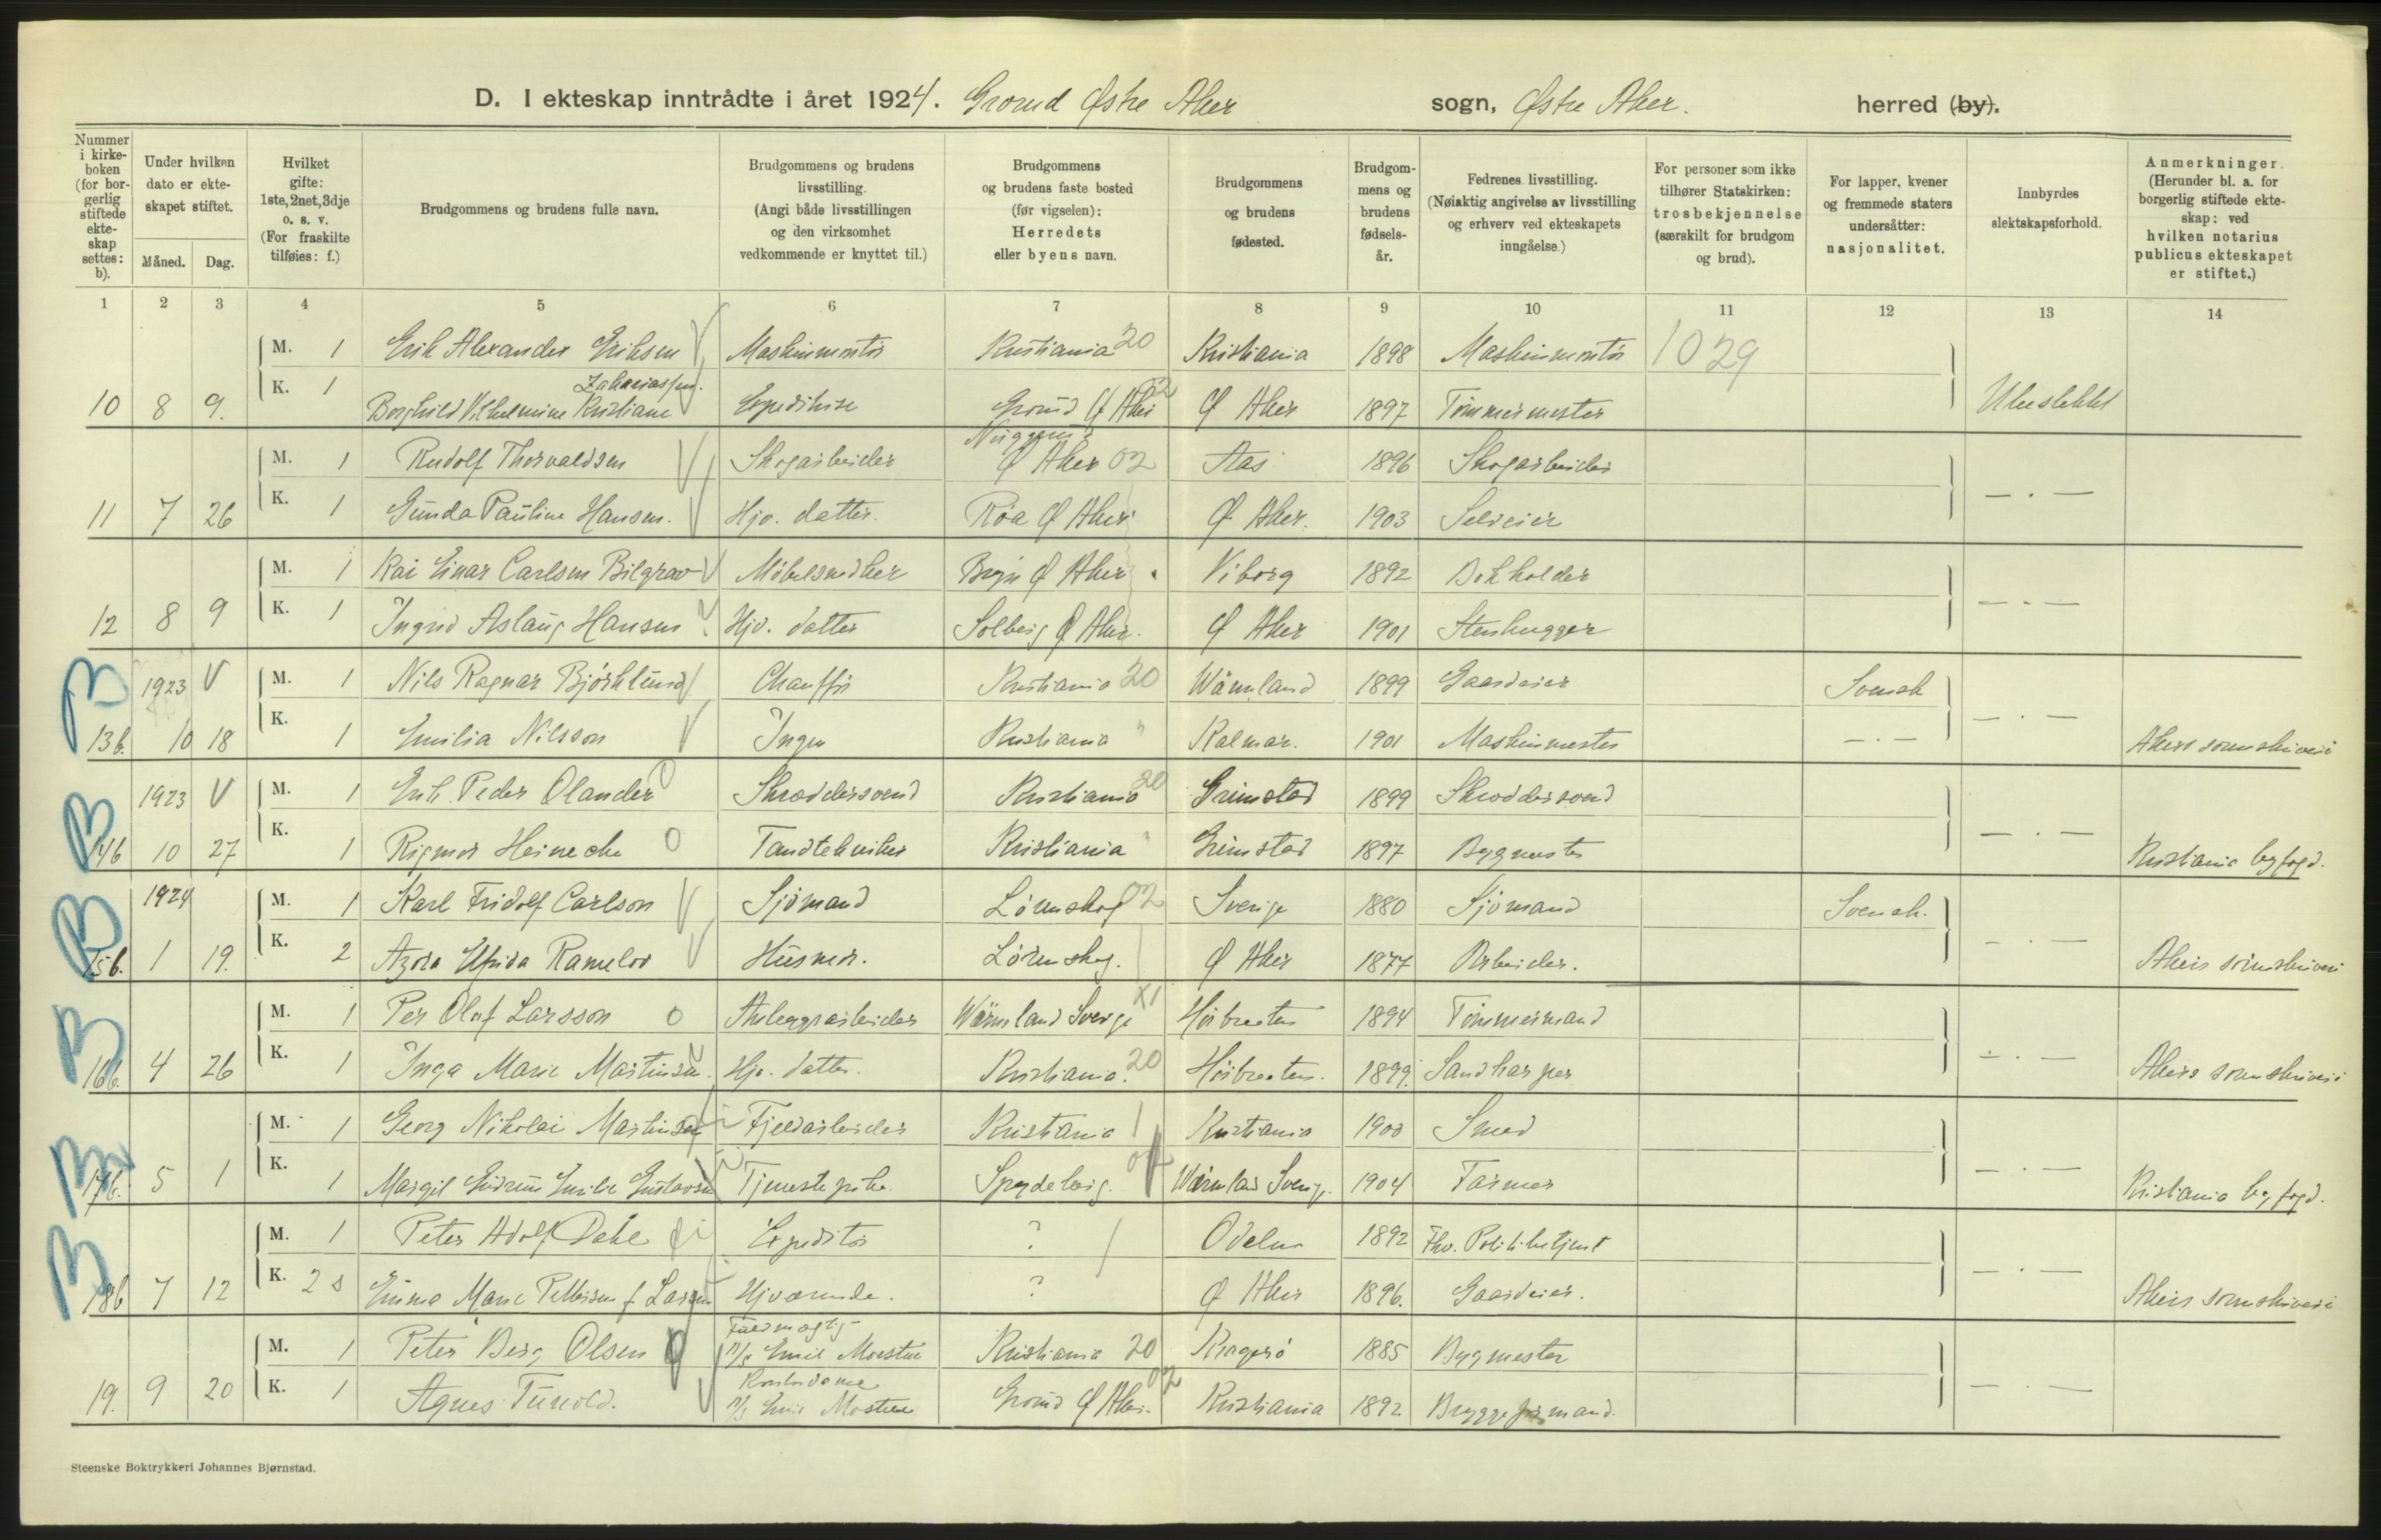 D. I ekteskap inntrådte i året 1924. Grorud Østre Aker sogn, Østre Aker. herred (by).
Nummer i kirkeboken (for borgerlig stiftede ekteskap settes: b).
Under hvilken dato er ekteskapet stiftet.
Måned. Dag.
Hvilket gifte: 1ste, 2net, 3dje o. s. v. (For fraskilte tilføies: f.)
Brudgommens og brudens fulle navn.
Brudgommens og brudens livsstilling. (Angi både livsstillingen og den virksomhet vedkommende er knyttet til.)
Brudgommens og brudens faste bosted (før vigselen): Herredets eller byens navn.
Brudgommens og brudens fødested.
Brudgommens og brudens fødselsår.
Fedrenes livsstilling. (Nøiaktig angivelse av livsstilling og erhverv ved ekteskapets inngåelse.)
For personer som ikke tilhører Statskirken: trosbekjennelse (særskilt for brudgom og brud).
For lapper, kvener og fremmede staters undersåtter: nasjonalitet.
Innbyrdes slektskapsforhold.
Anmerkninger. (Herunder bl. a. for borgerlig stiftede ekteskap: ved hvilken notarius publicus ekteskapet er stiftet.)
1 2 3 4 5 6 7 8 9 10 11 12 13 14
M. 1 Erik Alexander Eriksen Maskinmontør Kristiania 20 Kristiania 1898 Maskinmontør 1029
Zakariassen.
10 8 9. K. 1 Borghild Vilhelmine Kristiane Expeditrise Grorud Ø Aker 02 Ø Aker 1897 Tømmermester Ubeslektet
M. 1 Rudolf Thorvaldsen Skogarbeider Ø Aker 02 Aas 1896 Skogarbeider
11 7 26 K. 1 Gunda Pauline Hansen. Hjv. datter. Røa Ø Aker Ø Aker. 1903 Selveier — . —
M. 1 Kai Einar Carlsen Bilgrav Møbelsnedker Bryn Ø Aker Viborg 1892 Bokholder
12 8 9 K. 1 Ingrid Aslaug Hansen Hjv. datter Solberg Ø Aker. Ø Aker 1901 Stenhugger — . —
B 1923 V M. 1 Nils Ragnar Bjørklund Chauffør Kristiania 20 Wärmland 1899 Gaardeier Svensk
13b. 10 18 K. 1 Emilia Nilsson Ingen Kristiania " Kalmar. 1901 Maskinmester — . — — . — Akers sorenskriveri
B 1923 V M. 1 Erik Peder Olander Skræddersvend Kristiania 20 Grimstad 1899 Skræddersvend
14b 10 27 K. 1 Rigmor Heinecke O Tandtekniker Kristiania " Grimstad 1897 Bygmester — . — Kristiania byfogd.
B 1924 M. 1 Karl Fridolf Carlson Sjömand Lørenskog 02 Sverige 1880 Sjömand Svensk.
15b. 1 19. K. 2 Husmor. Lørenskog. Ø Aker 1877 Arbeider. — . — Akers sorenskriveri
B M. 1 Per Olof Larsson O Anleggsarbeider Wärmland Sverige X1 1894 Tømmermand
16b. 4 26 K. 1 Inga Marie Martinsen. Hjv. datter. Kristiania. 20 1899. — . — Akers sorenskriveri
B M. 1 Georg Nikolai Martinsen Fjeldarbeider Kristiania Kristiania 1900 Smed
17b. 5 1 K. 1 Margit Gudrun Emilie Gustavsen Tjenestepike. Spydeberg. Wärmland Sverige. 1904 Farmer — . — Kristiania byfogd.
B M. 1 Peter Adolf Dahl Expeditør ? 1892 Fhv. Politibetjent
18b 7 12 K. 2 s Emma Marie Pettersen f. Larsen Hjværende. ? Ø Aker 1896. Gaardeier. — . — Akers sorenskriveri
Fuldmægtig
M. 1 Peter Berg Olsen A/S Emil Moestue Kristiania 20 Kragerø 1885 Bygmester
Kontordame
19. 9 20 K. 1 Agnes Tunold. A/S Emil Moestue Grorud Ø Aker. 02 Kristiania 1892 Bryggeformand. — . —
Steenske Boktrykkeri Johannes Bjørnstad.